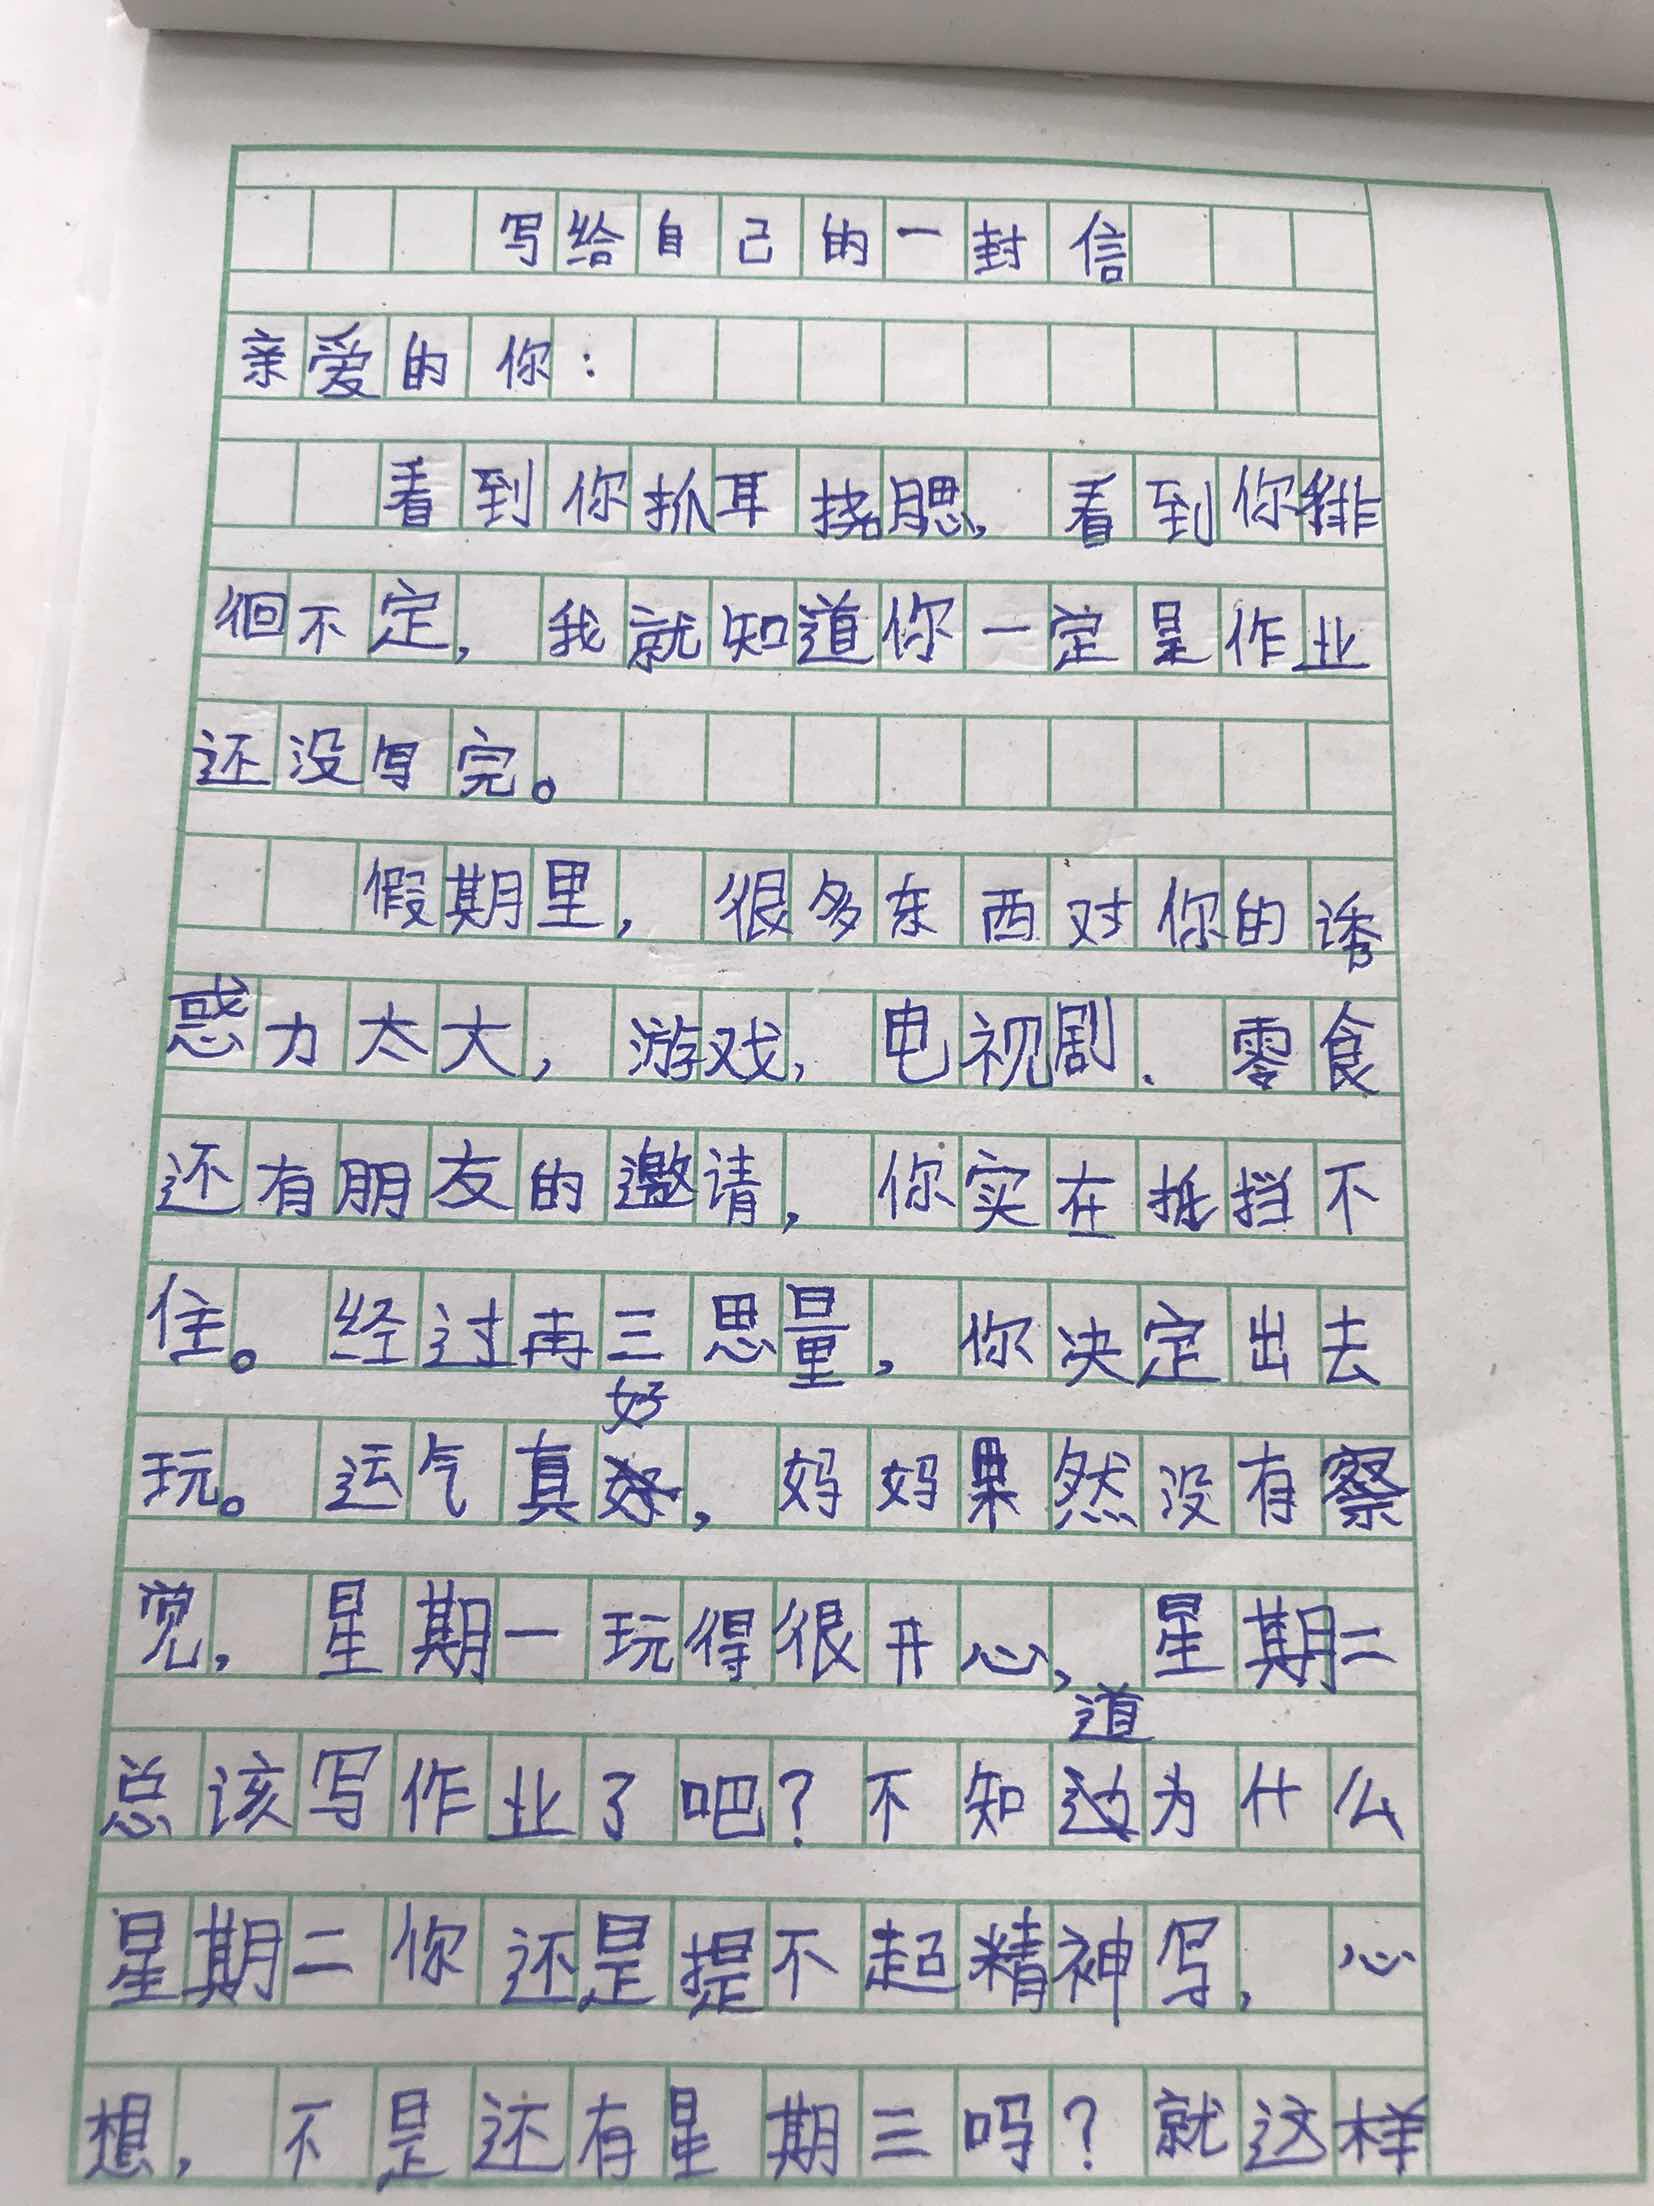 写给自己的一封信
亲爱的你：
看到你抓耳挠腮，看到你徘
徊不定，我就知道你一定是作业
还没写完。
假期里，很多东西对你的诱
惑力太大，游戏，电视剧、零食
还有朋友的邀请，你实在抵挡不
住。经过再三思量，你决定出去
玩。运气真好，妈妈果然没有察
觉，星期一玩得很开心，星期二
总该写作业了吧？不知道为什么
星期二你还是提不起精神写，心
想，不是还有星期三吗？就这样